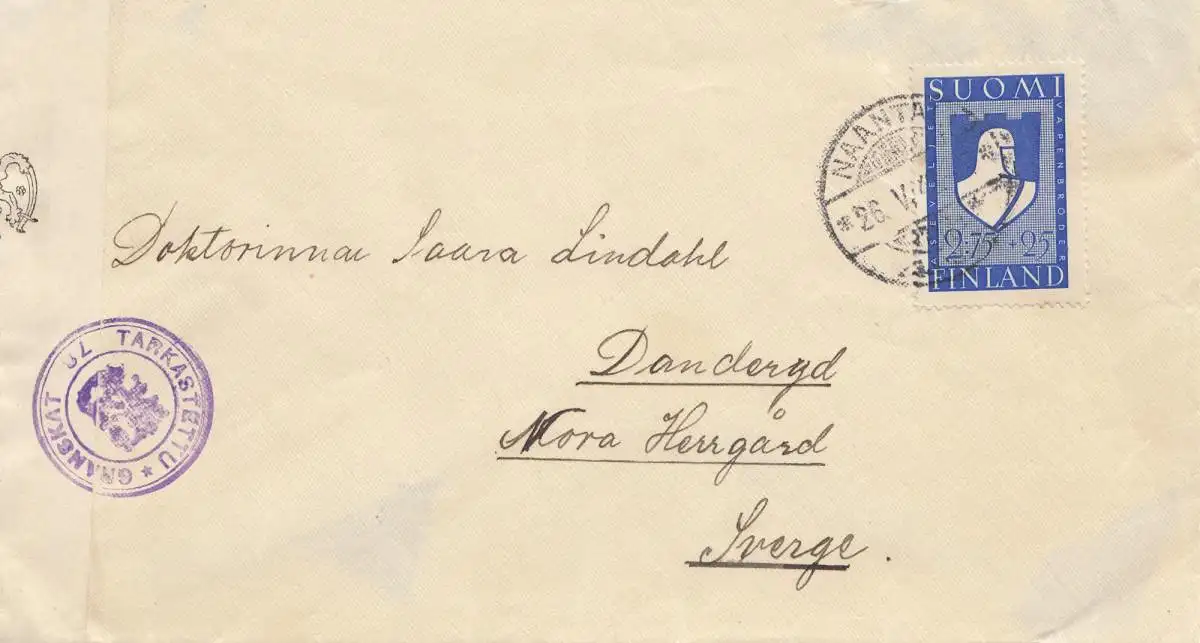 SUOMI
ASEVELJET
VAPENBRÖDER
2·75+25
FINLAND
26. V
Doktorinnan Saara Lindahl
Danderyd
Mora Herrgård
Sverge.
TARKASTETTU * GRANSKAT